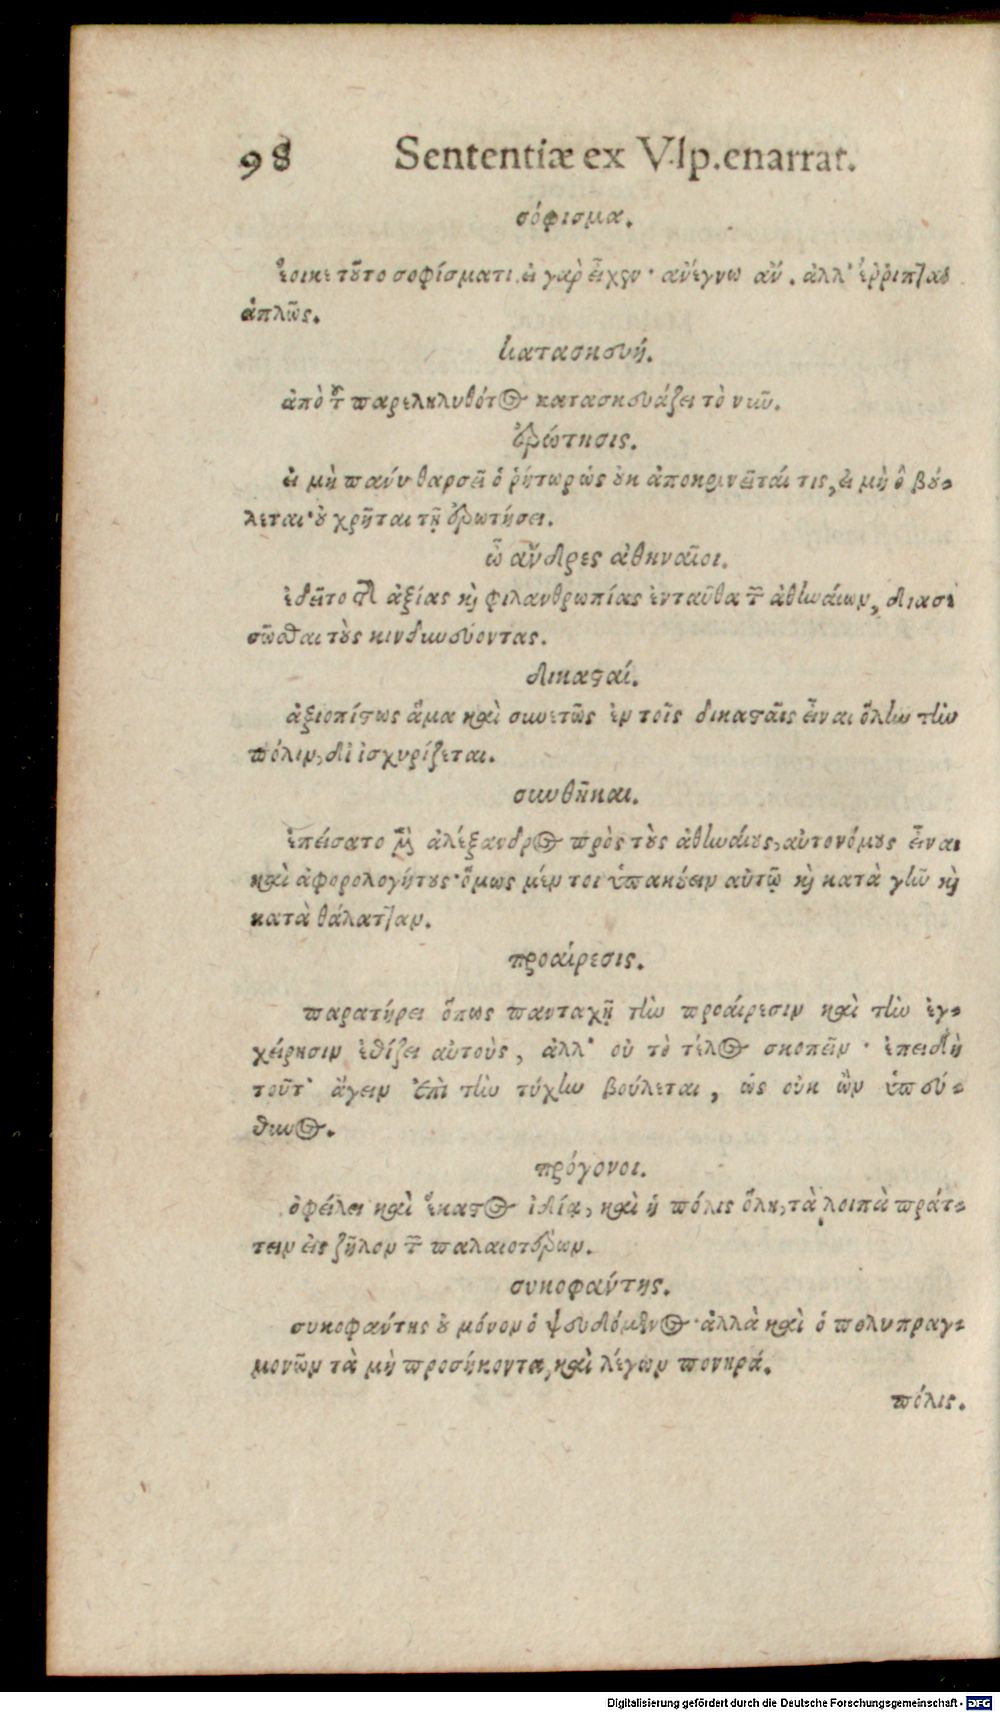 98 Sententiæ ex Vlp. enarrat.
σόφισμα.
ἔοικε τοῦτο σοφίσματι. εἰ γαρ εἶχεν· ἀνέγνω ἄν. ἀλλ' ἐῤῥιπτας
ἁπλῶς.
κατασκευή.
ἀπὸ τοῦ παρεληλυθότος κατασκευάζει τὸ νῦν.
ἐρώτησις.
εἰ μὴ πανύ θαρσεῖ ὁ ῥήτωρ ὡς οὐκ ἀποκρινεῖταί τις, εἰ μὴ ὃ βού-
λεται· οὐ χρῆται τῇ ἐρωτήσει.
ὦ ἄνδρες ἀθηναῖοι.
ἐδεῖτο τῆς ἀξίας καὶ φιλανθρωπίας ἐνταῦθα τῶν ἀθηναίων, διασ
σῶσθαι τοὺς κινδυνεύοντας.
δικασταί.
ἀξιοπίστως ἅμα καὶ συνετῶς ἐν τοῖς δικασταῖς εἶναι ὅλην τὴν
πόλιν, διϊσχυρίζεται.
συνθῆκαι.
ἐπείσατο μὲν ἀλέξανδρος πρὸς τοὺς ἀθηναίους, αὐτονόμους εἶναι
καὶ ἀφορολογήτους· ὅμως μέν τοι ὑπακούειν αὐτῷ καὶ κατὰ γῆν καὶ
κατὰ θάλατταν.
προαίρεσις.
παρατήρει ὅπως πανταχῇ τὴν προαίρεσιν καὶ τὴν ἐγ-
χείρησιν ἐθίζει αὐτοὺς, ἀλλ' οὐ τὸ τέλος σκοπεῖν· ἐπειδὴ
τοῦτ' ἄγειν ἐπὶ τὴν τύχην βούλεται, ὡς οὐκ ὢν ὑπεύ-
θυνος.
πρόγονοι.
ὀφείλει καὶ ἕκαστος ἰδίᾳ, καὶ ἡ πόλις ὅλη, τὰ λοιπὰ πράτ-
τειν εἰς ζῆλον τῶν παλαιοτέρων.
συκοφαύτης.
συκοφαύτης οὐ μόνον ὁ ψευδόμενος· ἀλλὰ καὶ ὁ πολυπραγ-
μονῶν τὰ μὴ προσήκοντα, καὶ λέγων πονηρά.
πόλις.
Digitalisierung gefördert durch die Deutsche Forschungsgemeinschaft - DFG